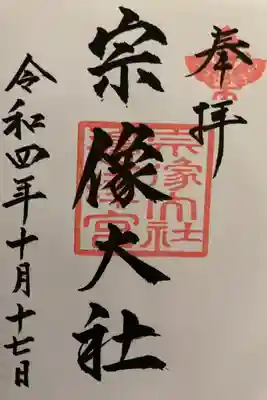 奉拝
宗像大社
令和四年十月十七日
宗像大社